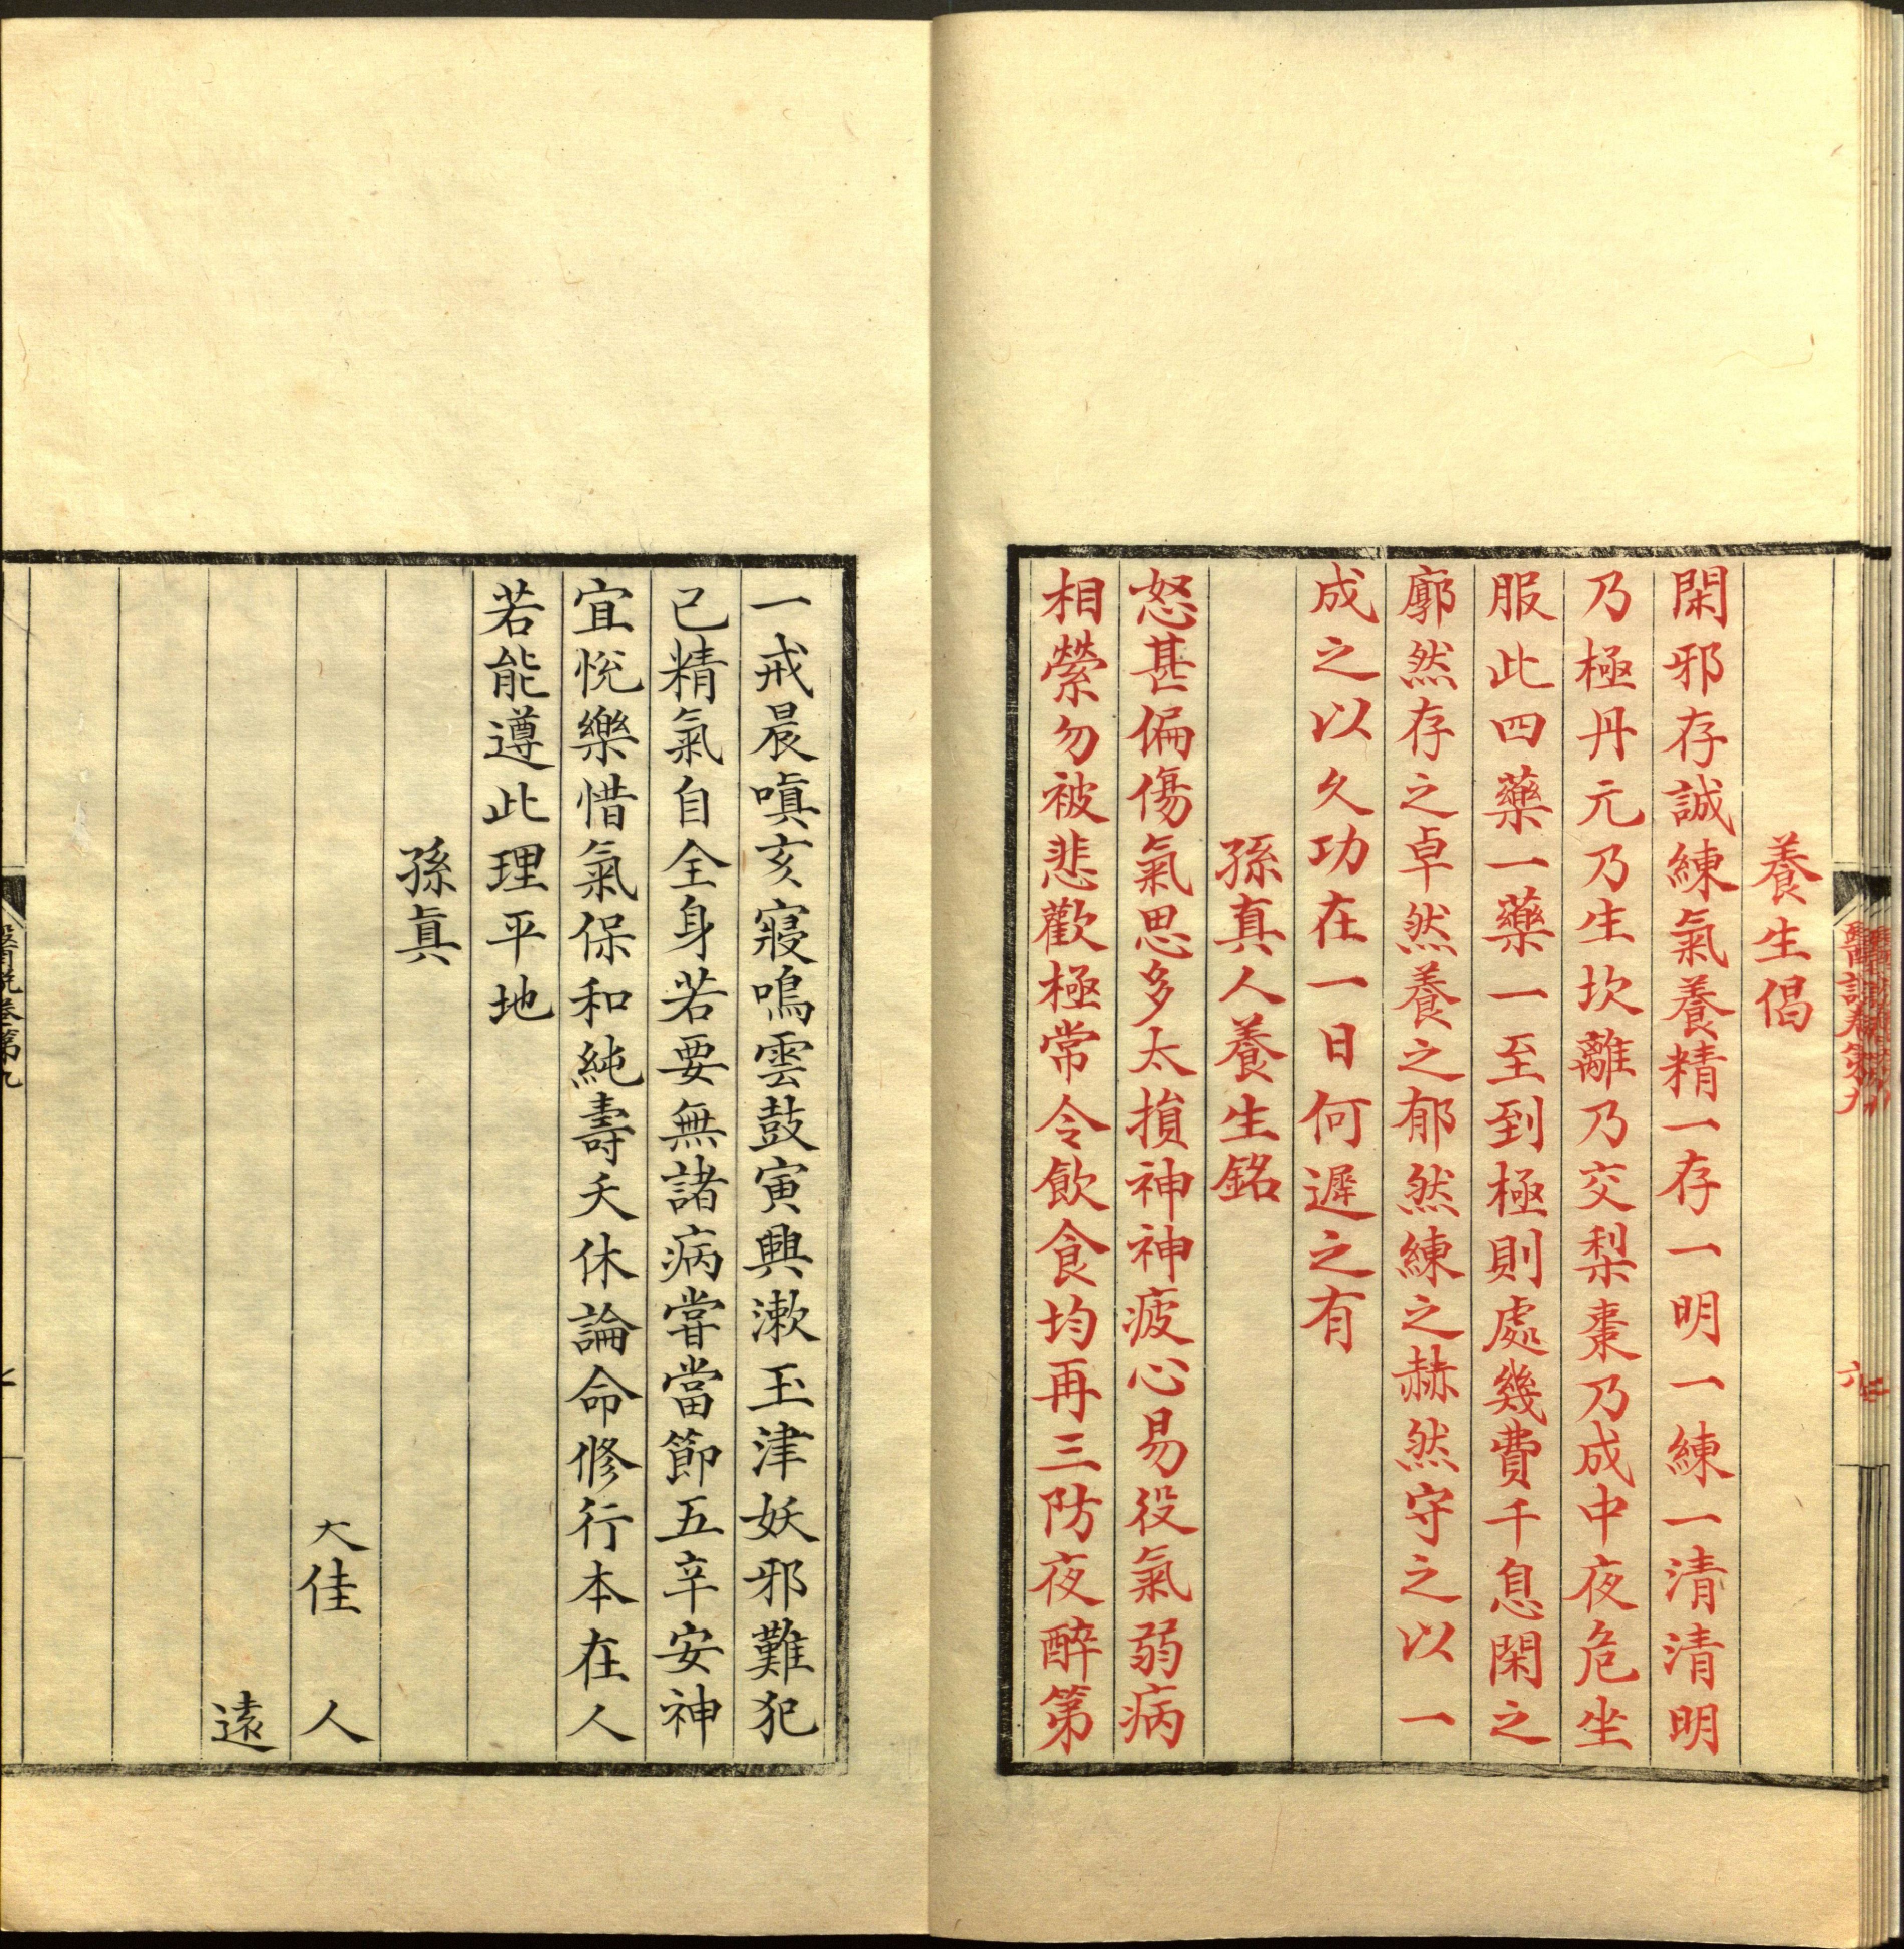 養生偈
閑邪存誠練氣養精一存一明一練一清清明
乃極丹元乃生坎離乃交梨棗乃成中夜危坐
服此四藥一藥一至到極則處幾費千息閑之
廓然存之卓然養之郁然練之赫然守之以一
成之以久功在一日何遲之有
孫真人養生銘
怒甚偏傷氣思多太損神神疲心易役氣弱病
相縈勿被悲歡極常令飲食均再三防夜醉第
一戒晨嗔亥寢鳴雲鼓寅興漱玉津妖邪難犯
己精氣自全身若要無諸病嘗當節五辛安神
宜悅樂惜氣保和純壽夭休論命修行本在人
若能遵此理平地
孫真
大佳 人
遠
醫說卷第九